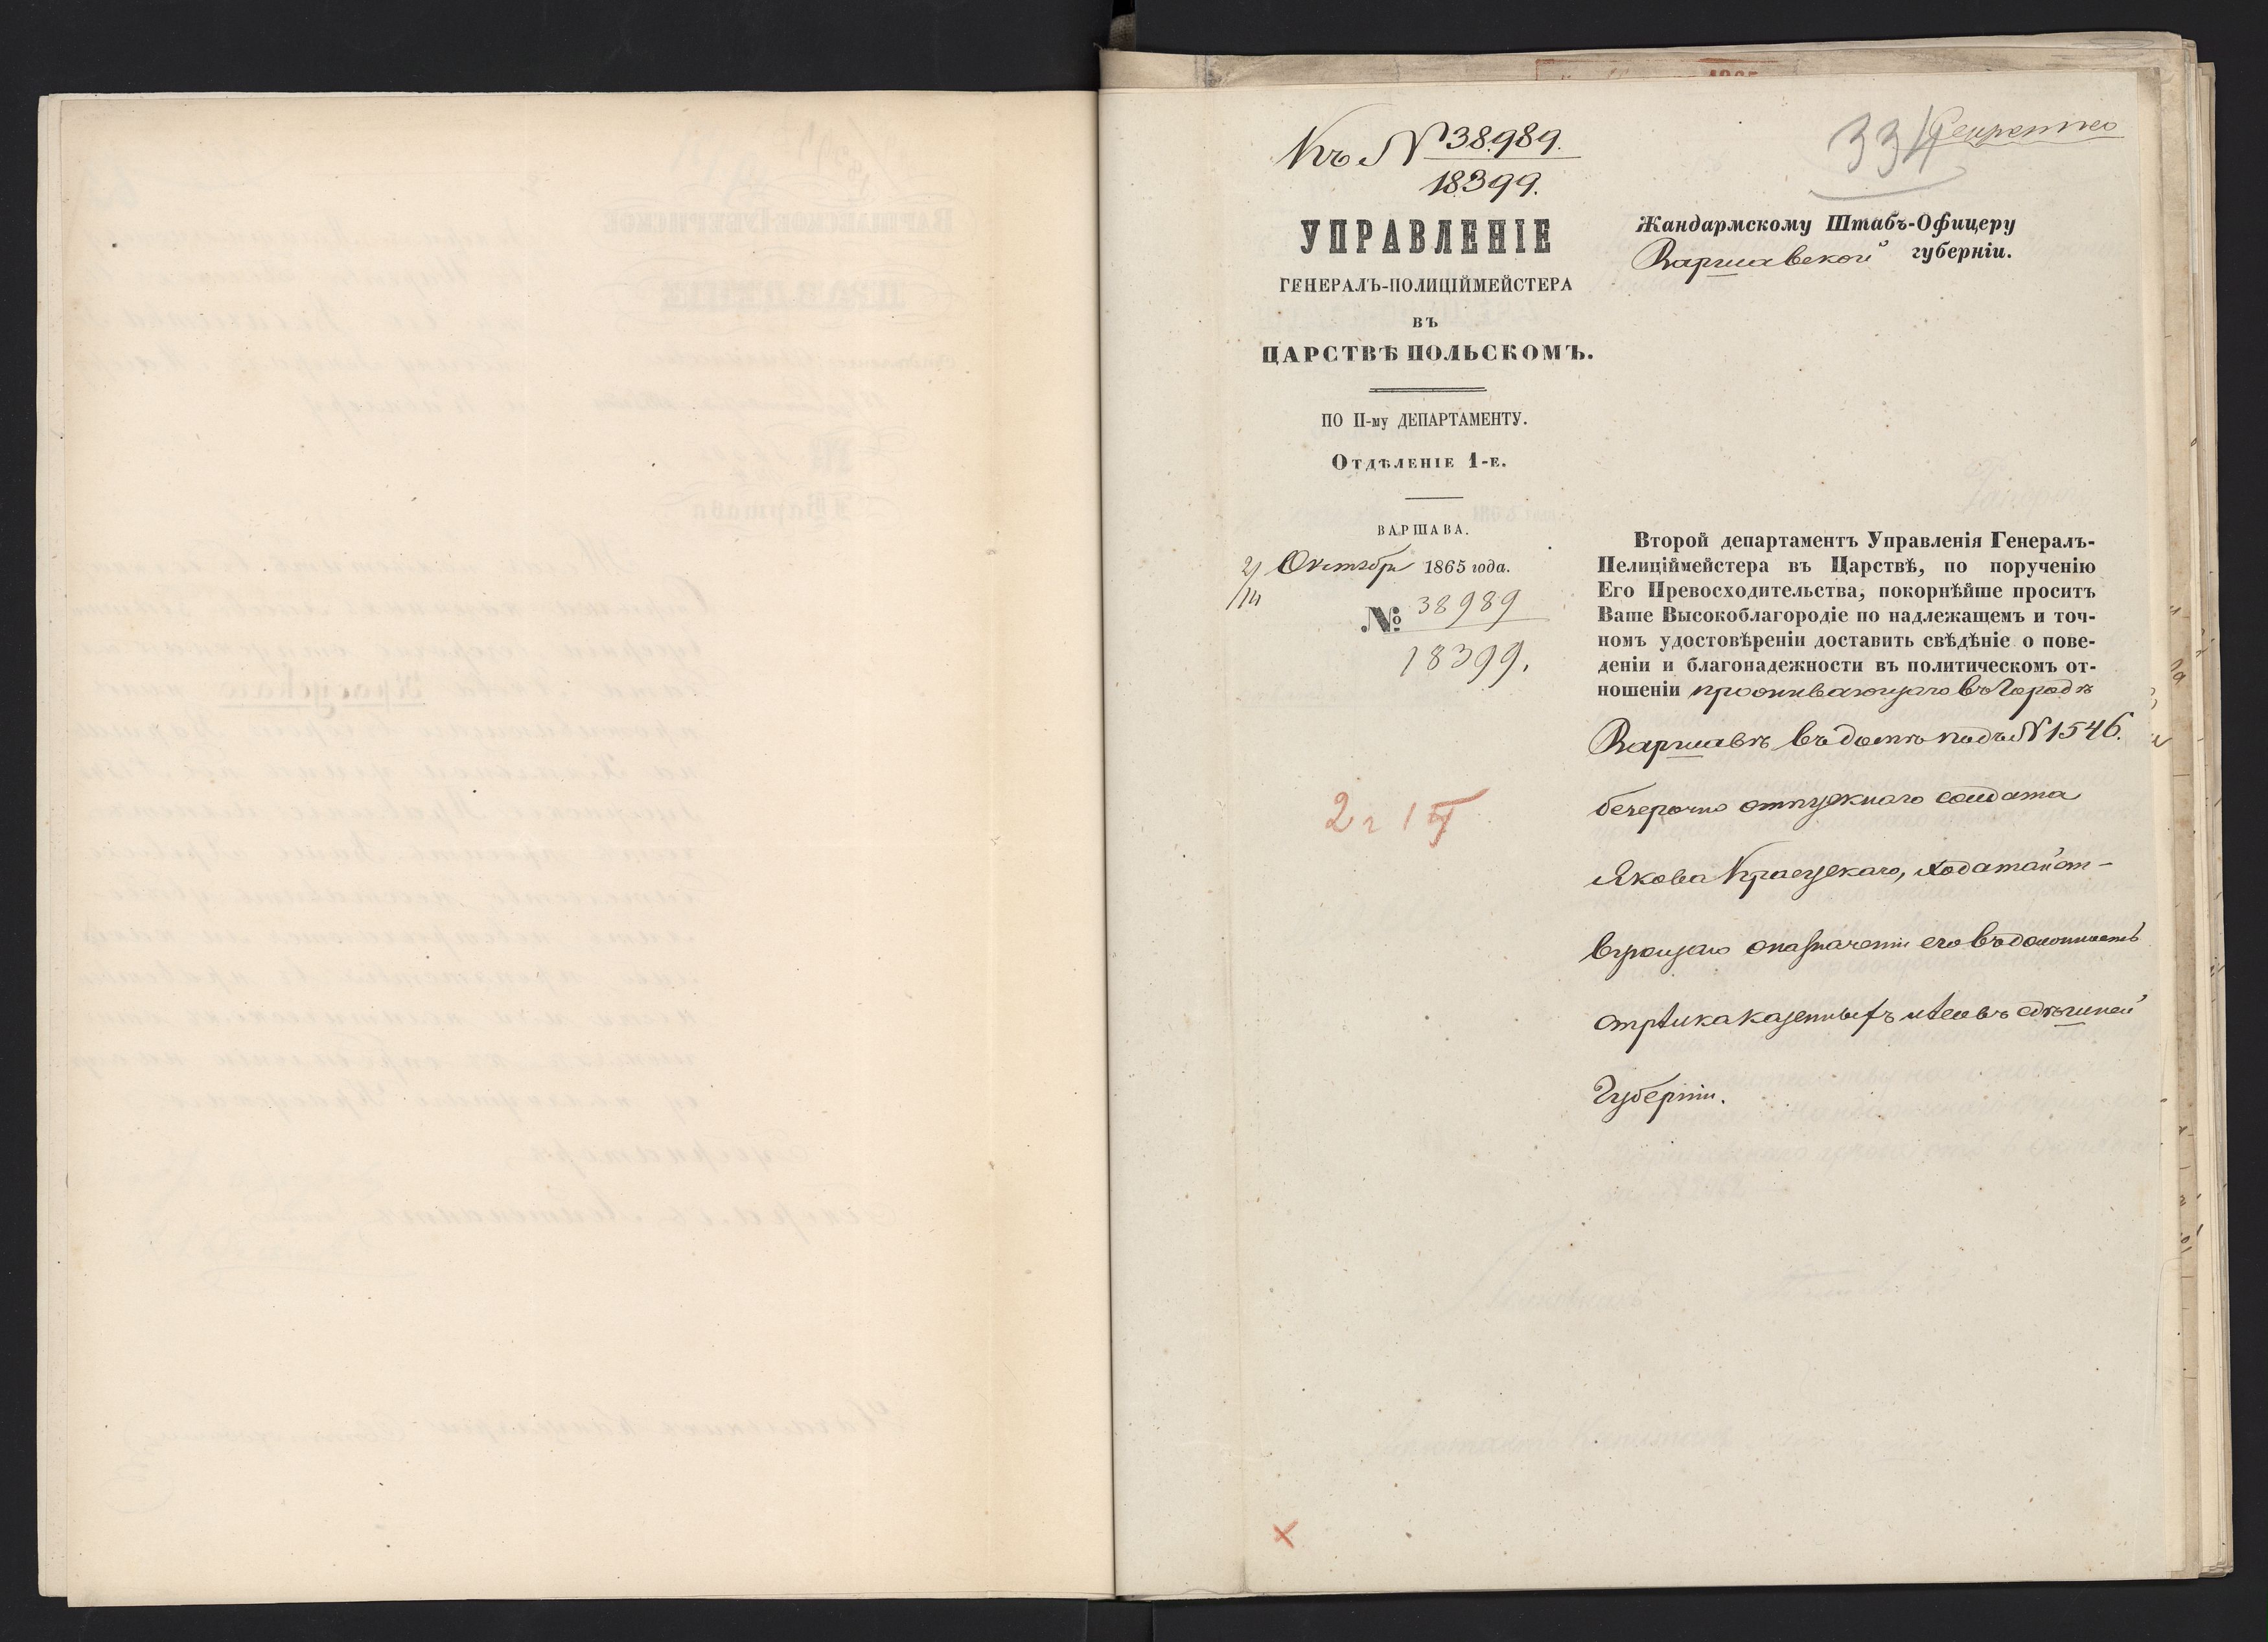 Къ № 38989.
18399.
334
Секретно
УПРАВЛЕНІЕ
ГЕНЕРАЛЪ-ПОЛИЦІЙМЕЙСТЕРА
ВЪ
ЦАРСТВѢ ПОЛЬСКОМЪ.
ПО II-му ДЕПАРТАМЕНТУ.
Отдѣленіе 1-е.
ВАРШАВА.
2/14 Октября 1865 года.
№ 38989
18399.
Жандармскому Штабъ-Офицеру
Варшавской губерніи.
Второй департаментъ Управленія Генералъ-
Пелиціймейстера въ Царствѣ, по порученію
Его Превосходительства, покорнѣйше проситъ
Ваше Высокоблагородіе по надлежащемъ и точ-
номъ удостовѣреніи доставить свѣдѣніе о пове-
деніи и благонадежности въ политическомъ от-
ношеніи проживающаго въ Городѣ
Варшавѣ въ домѣ подъ № 1546.
безсрочно отпускнаго солдата
Якова Красускаго, ходатайст-
вующаго о назначеніи его въ должность
стрѣлка казенныхъ лѣсовъ здѣшней
Губерніи.